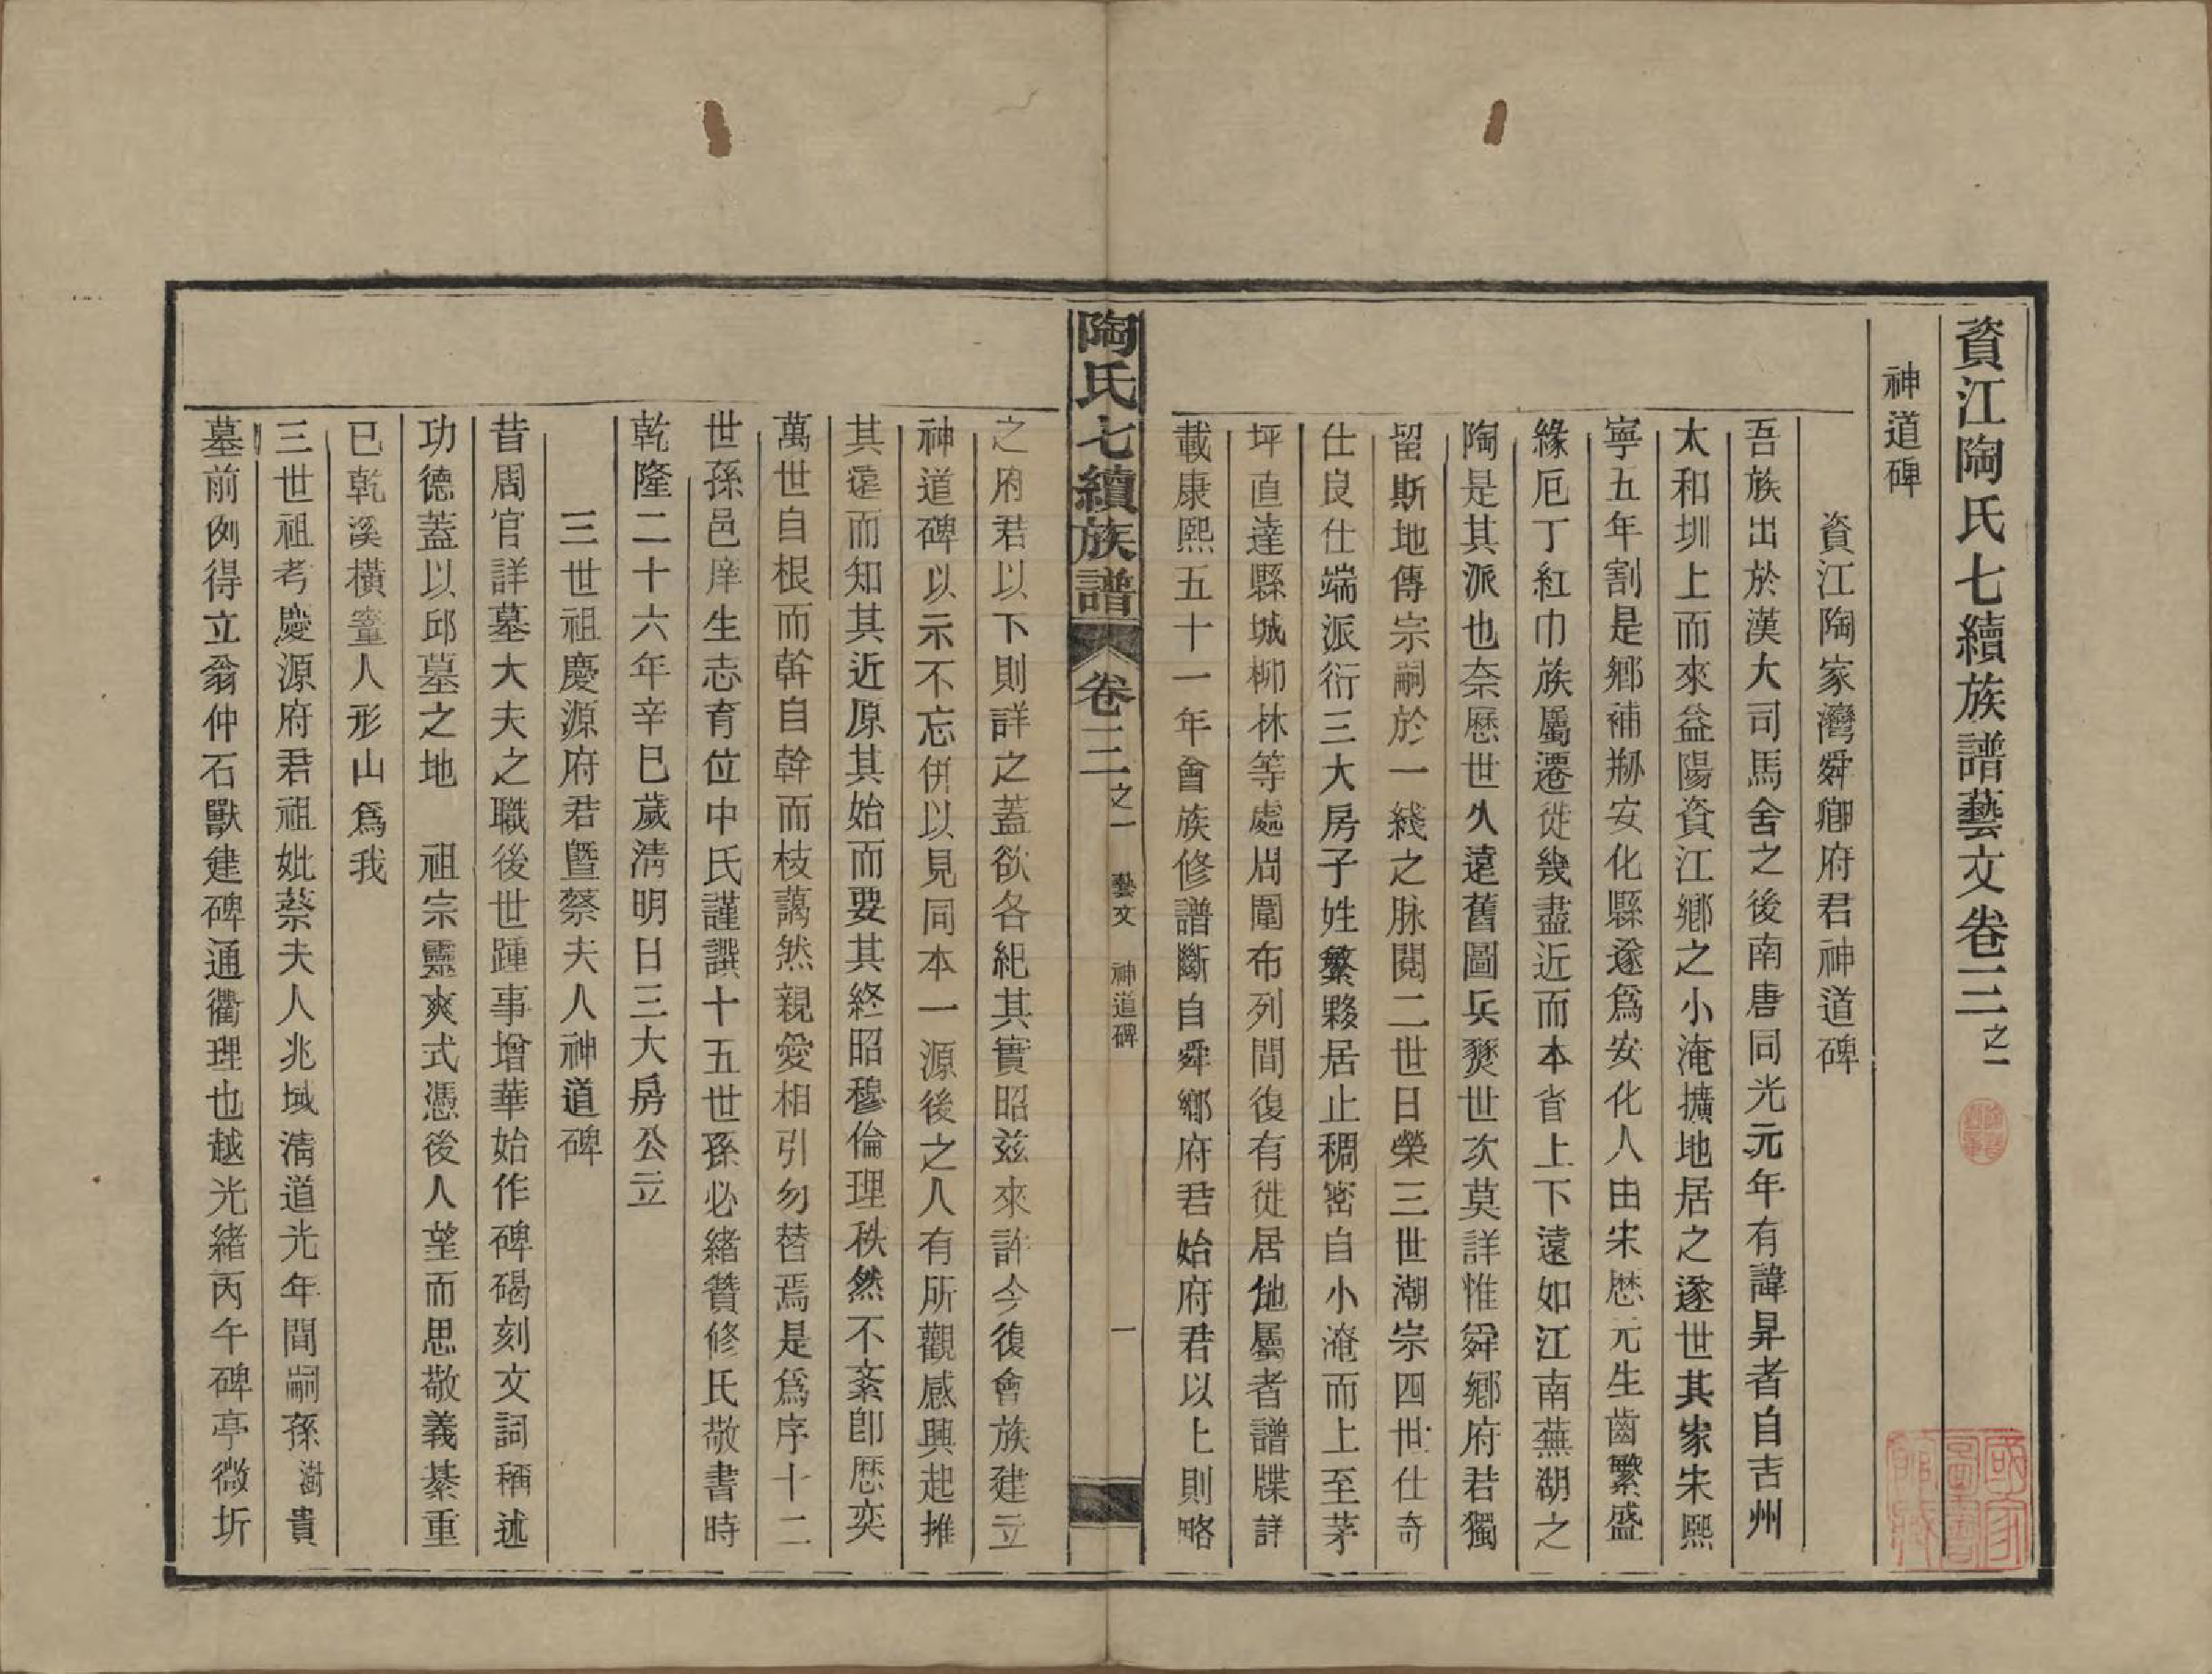 資江陶氏七續族譜藝文卷三之一
神道碑
資江陶家灣舜鄉府君神道碑
吾族出於漢大司馬舍之後南唐同光元年有諱昇者自吉州
太和圳上而來益陽資江鄉之小淹擴地居之遂世其家宋熙
寧五年割是鄉補刱安化縣遂爲安化人由宋歷元生齒繁盛
緣厄丁紅巾族屬遷徙幾盡近而本省上下遠如江南蕪湖之
陶是其派也奈歷世久遠舊圖兵燹世次莫詳惟舜鄉府君獨
留斯地傳宗嗣於一綫之脉閱二世日榮三世潮宗四世仕奇
仕良仕端派衍三大房子姓繁夥居止稠密自小淹而上至茅
坪直達縣城柳林等處周圍布列間復有徙居他屬者譜牒詳
載康熙五十一年會族修譜斷自舜鄉府君始府君以上則略
陶氏七續族譜 卷三之一 藝文 神道碑 一
之府君以下則詳之蓋欲各紀其實昭茲來許今復會族建立
神道碑以示不忘倂以見同本一源後之人有所觀感興起推
其遠而知其近原其始而要其終昭穆倫理秩然不紊卽歷奕
萬世自根而幹自幹而枝藹然親愛相引勿替焉是爲序十二
世孫邑庠生志育位中氏謹譔十五世孫必緒贊修氏敬書時
乾隆二十六年辛巳歲淸明日三大房公立
三世祖慶源府君曁蔡夫人神道碑
昔周官詳墓大夫之職後世踵事增華始作碑碣刻文詞稱述
功德蓋以邱墓之地　祖宗靈爽式憑後人望而思敬義綦重
已乾溪橫𡑞人形山爲我
三世祖考慶源府君祖妣蔡夫人兆域淸道光年間嗣孫澍貴
墓前例得立翁仲石獸建碑通衢理也越光緒丙午碑亭微圻